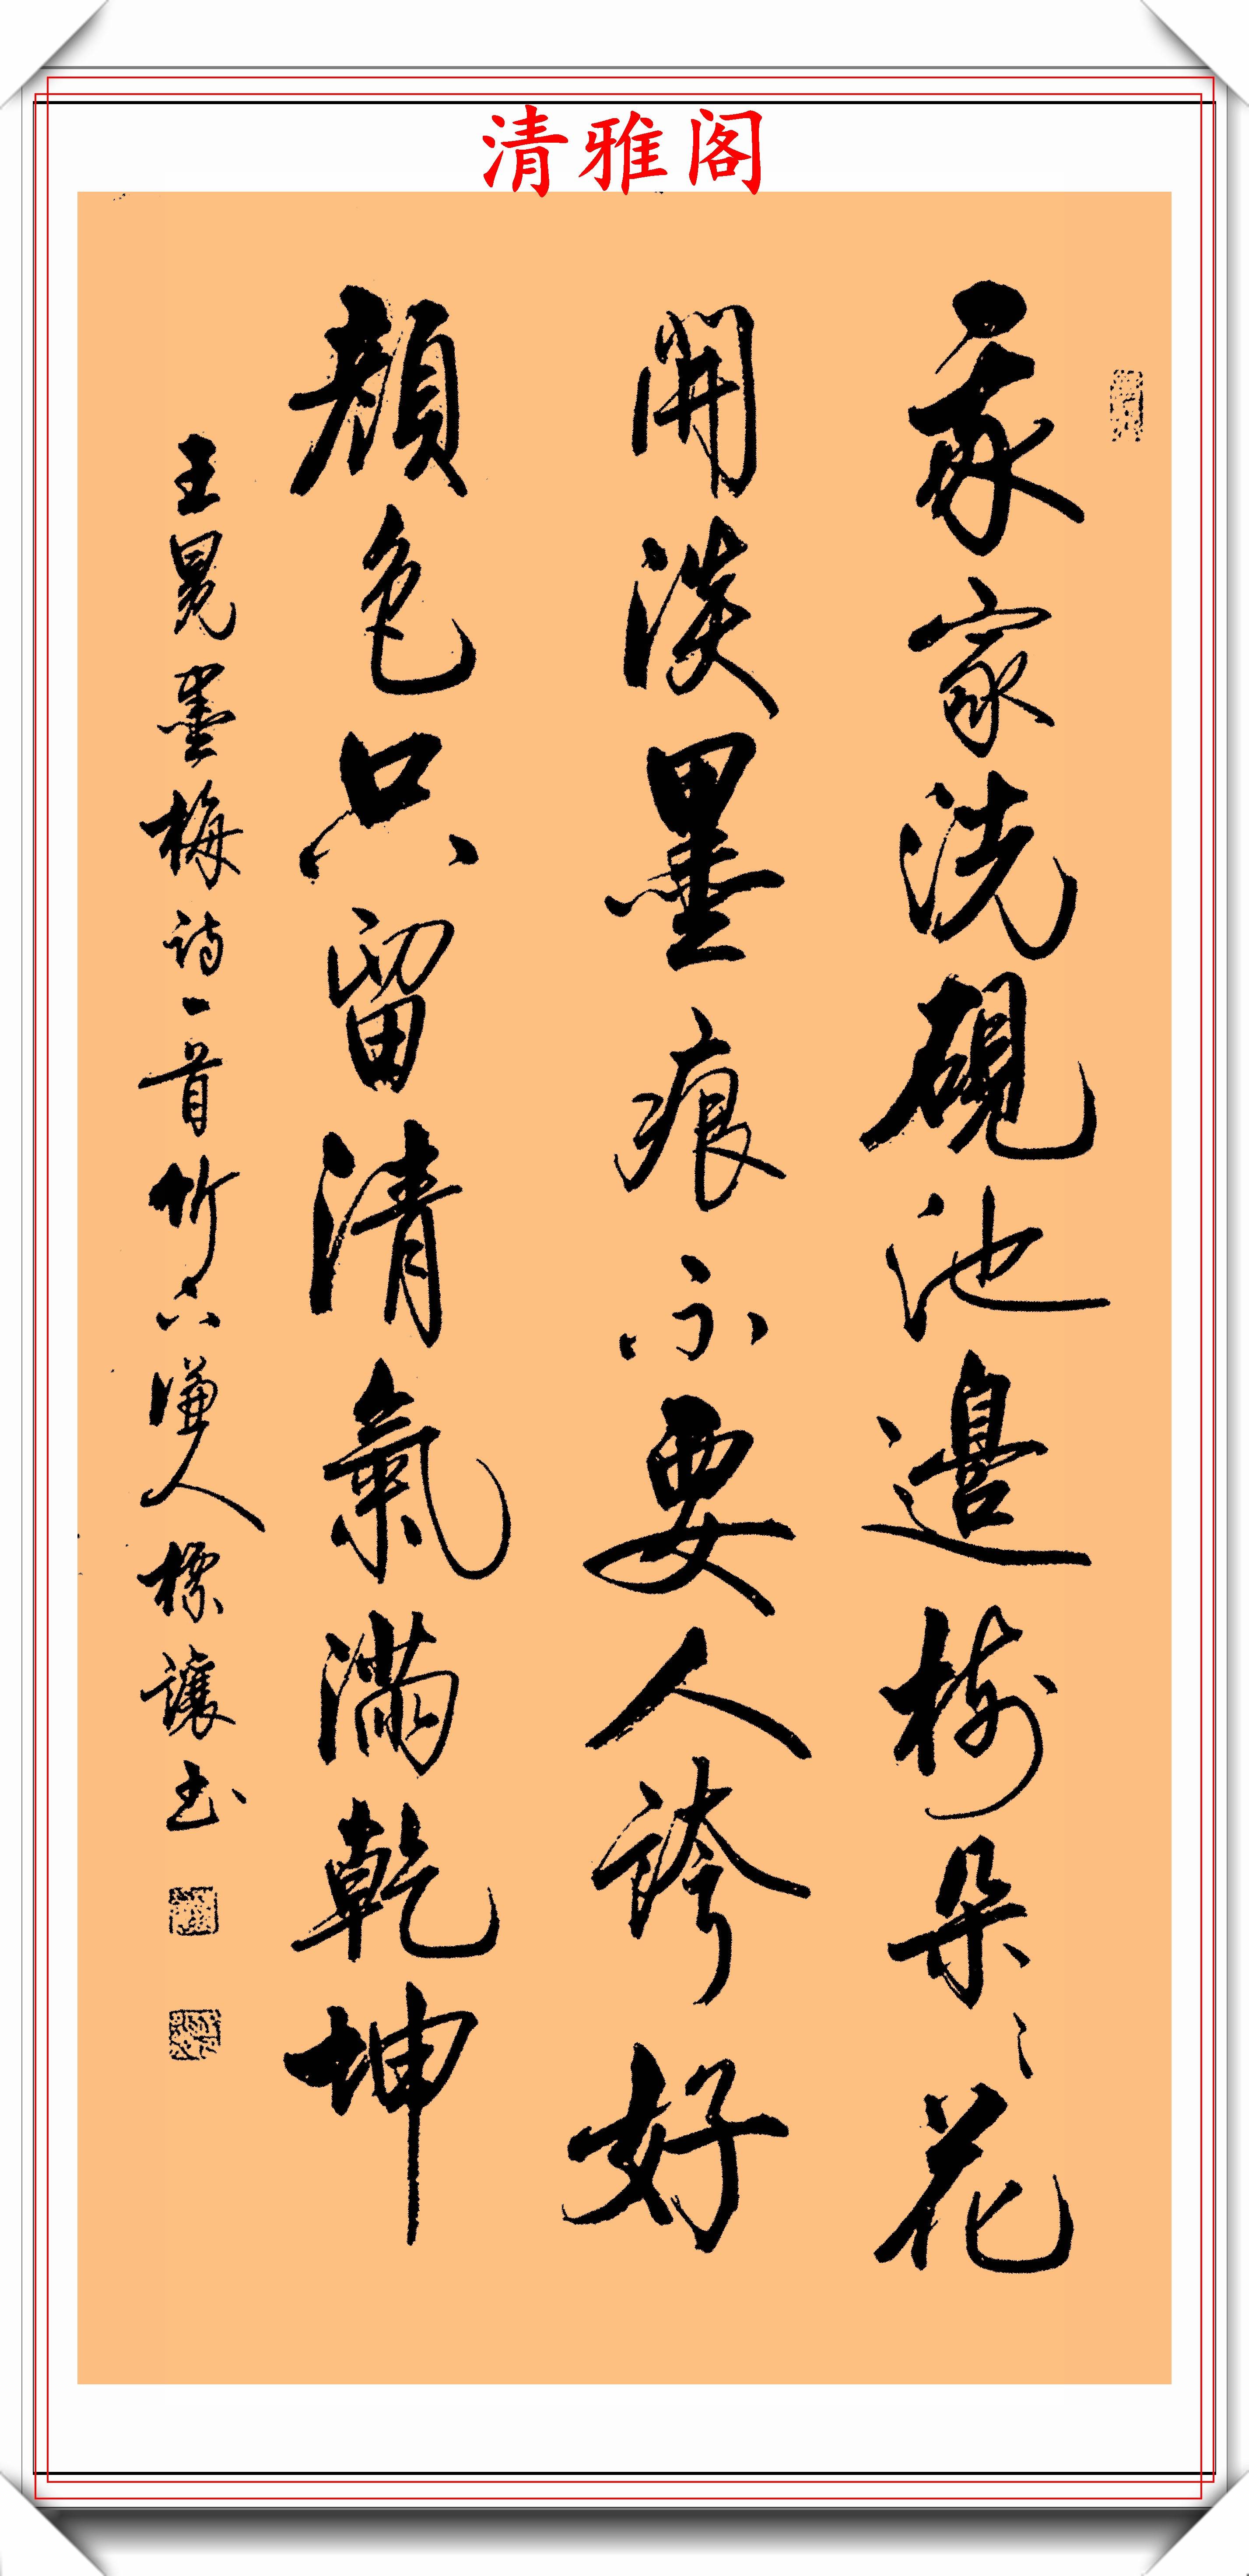 清雅阁
我家洗硯池邊樹朵〻花
開淡墨痕不要人誇好
顏色只留清氣滿乾坤
王冕墨梅詩一首竹謙人標讓書